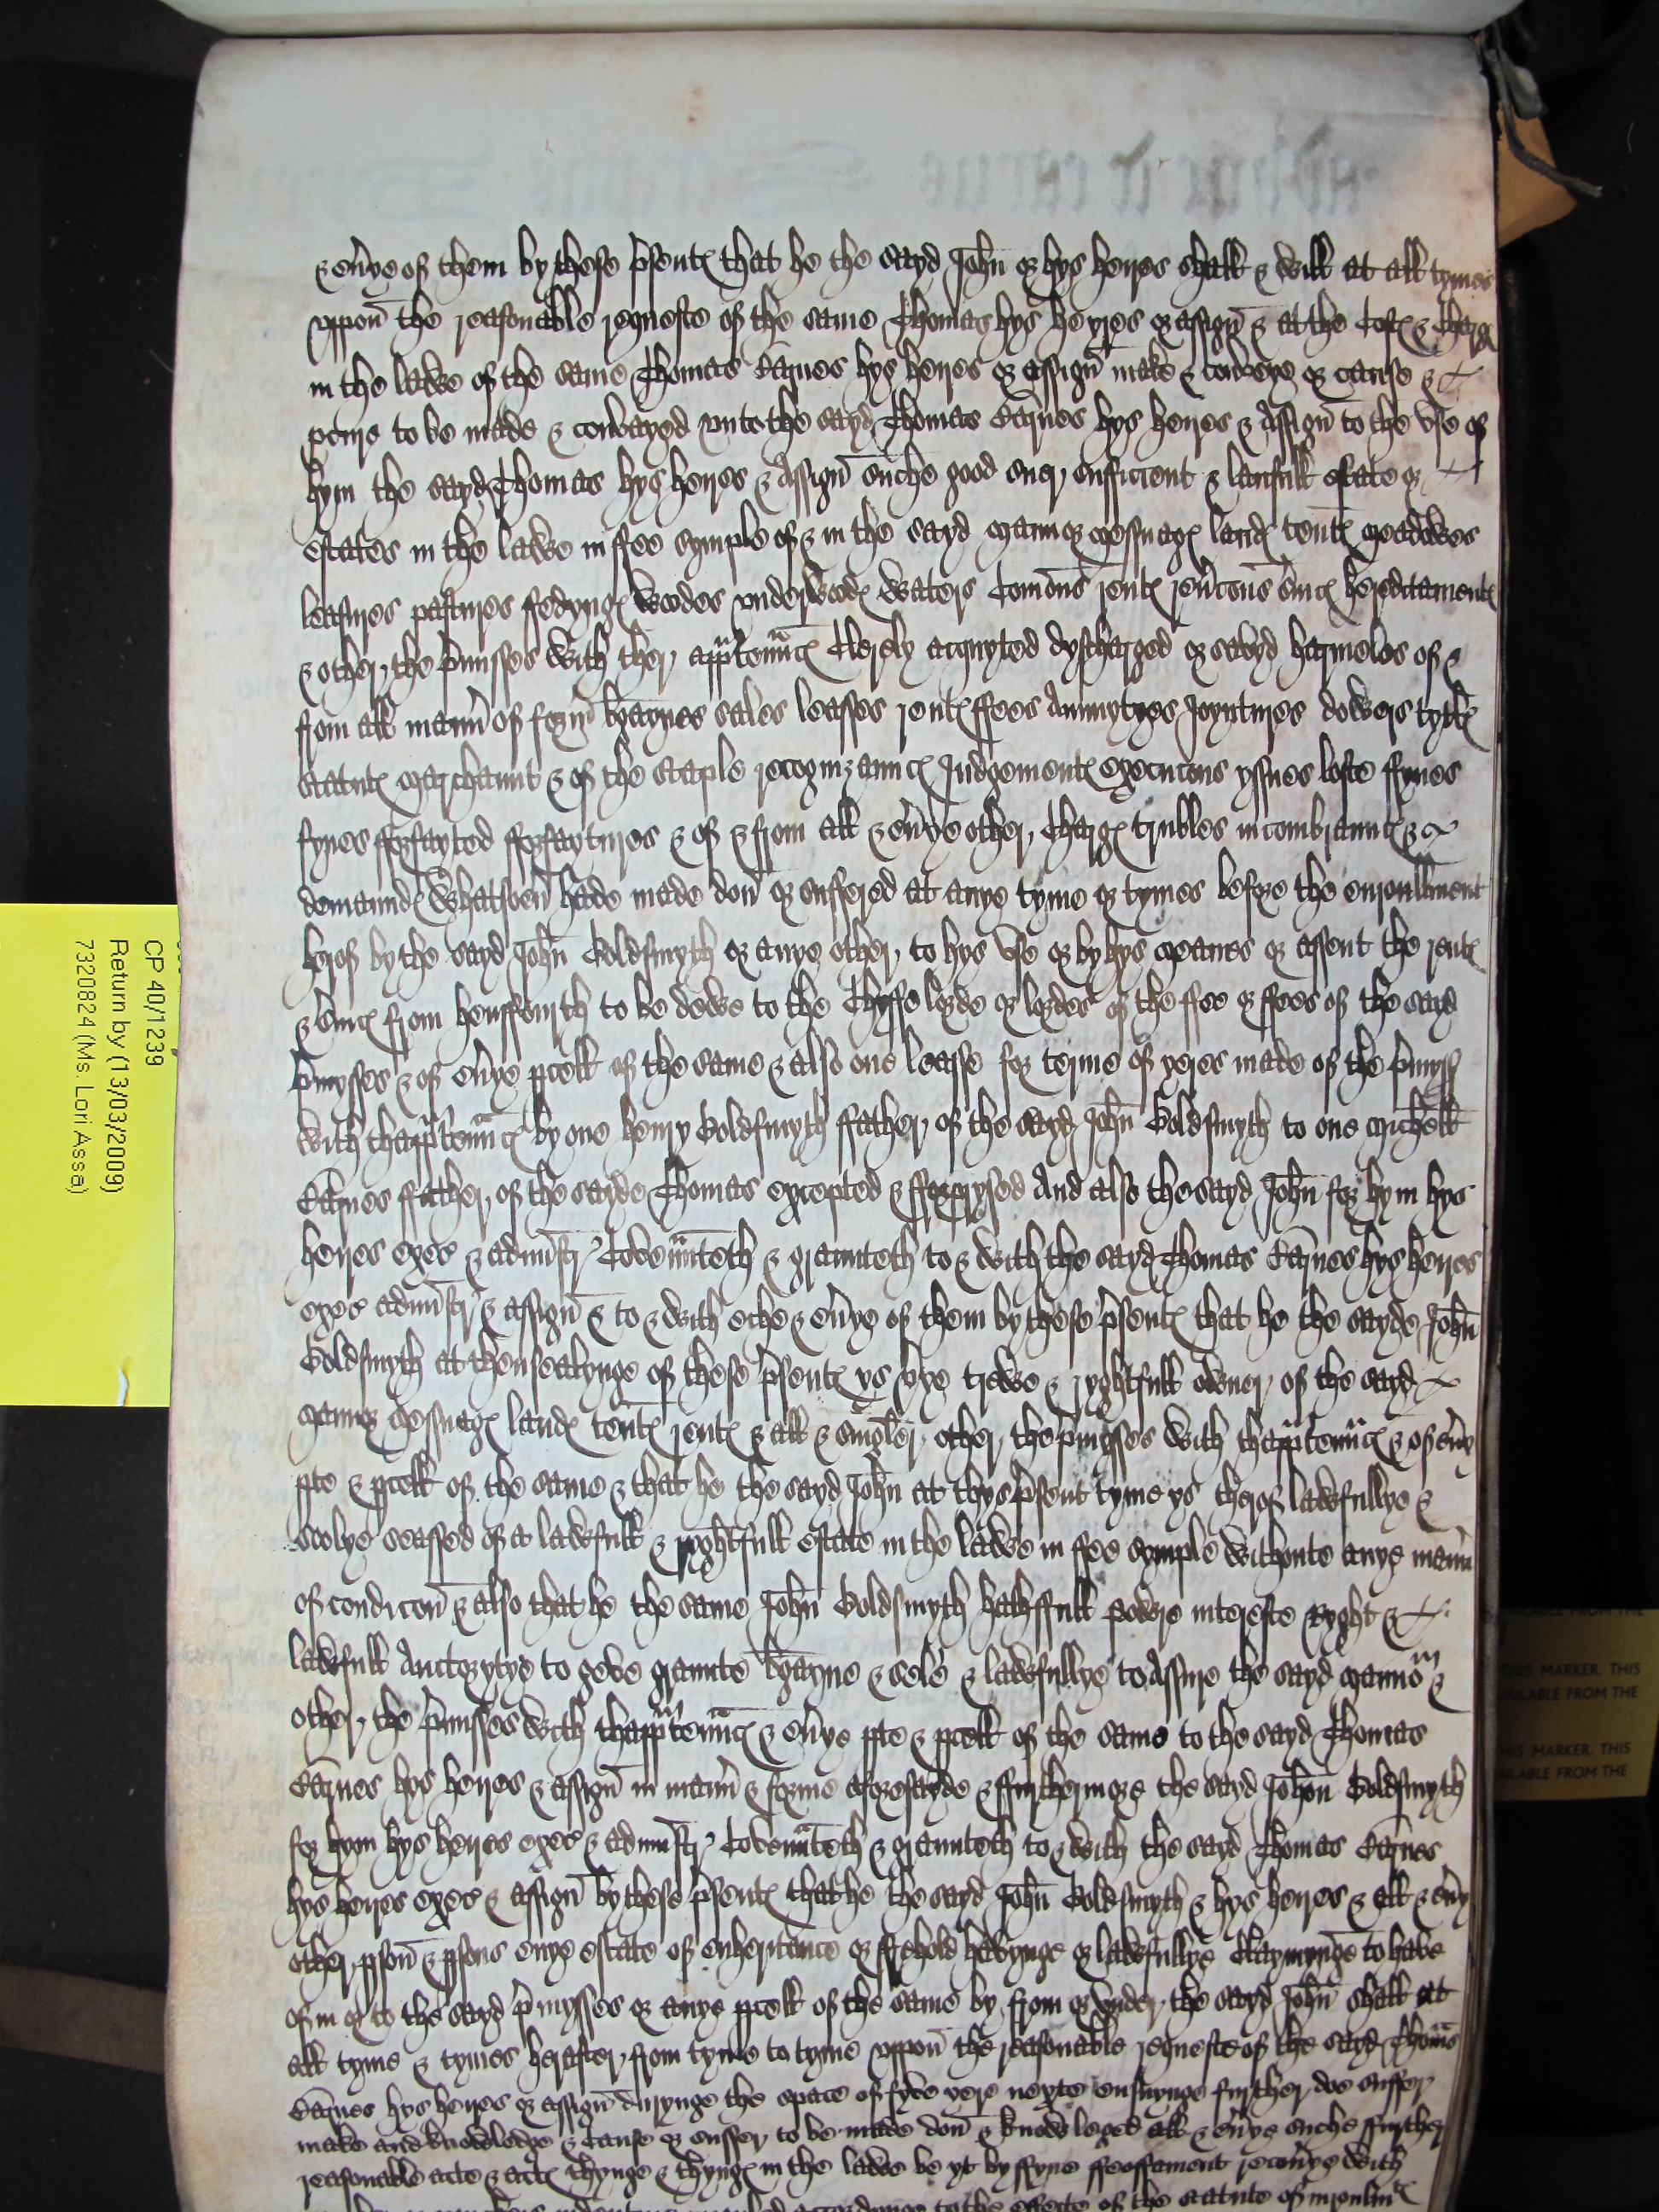 & eu'ye of them by these p'sent that he the sayd John or hys heyres shall & will at all tymes
vppon the reasonable requeste of the same Thomas hys heyres or assign & at the Cost & Charg
in the lawe of the same Thomas Eaynes hys heyres or assign make & conveye or cause &
pcure to be made & convayed vnto the sayd Thomas Eaynes hys heyres & Assign to the vse of
hym the sayd Thomas hys heyres & Assign suche good suer sufficient & laufull estate or
estates in the lawe in ffee symple of & in the sayd Mannor Messuag land tent Meadowes
leasures pastures fedyng woodes vnderwood waters Comons rent reu'cons s'uic hereditament
& other the p'misses with ther app'tennc Clerely acquyted dyscharged or savyd harmeles of &
from all mann' of form' bargaynes sales leasses rent ffees Annuytyes Joyntures dowers tytle
statut Marchaunt & of the staple recognizaunc Judgement execucons yssues loste ffynes
fynes fforfayted fforfaytures & of & from all & eu'ye other Charg trubles incombraunc &
demaund whatsoeu' hade made don or suffered at anye tyme or tymes before the enroullment
herof by the sayd John Goldsmyth or anye other to hys vse or by hys Meanes or assent the rent
& s'uic from hensfforth to be dewe to the Chyffe lorde or lordes of the ffee or ffees of the sayd
p'mysses & of eu'ye pcell of the same & also one leasse for terme of yeres made of the p'myss
with thapp'tennc by one henry Goldsmyth ffather of the sayd John Goldsmyth to one Michell
Eaynes ffather of the sayde Thomas excepted & fforprysed And also the sayd John for hym hys
heyres exec & administr Covenuteth & graunteth to & with the sayd Thomas Eaynes hys heyres
exec administr & assign & to & with eche & eu'ye of them by these p'sent that he the sayde John
Goldsmyth at thensealynge of these p'sent ys vrye trewe & ryghtfull owner of the sayd
Mannor Messuag land tent rent & all & singler other the p'mysses with thapp'tennc & of eu'y
pte & pcell of the same & that he the sayd John at thys p'sent tyme ys therof lawfullye &
soolye seassed of a lawfull & ryghtfull estate in the lawe in ffee symple withoute anye mann'
of condicon & also that he the same John Goldsmyth hathe ffull powre intereste Ryght &
lawfull Auctorytye to geve graunte bargayne & sele & lawfullye to Assure the sayd Mannor &
other the p'misses with thapp'tennc & eu'ye pte & pcell of the same to the sayd Thomas
Eaynes hys heyres & assign in mann' & forme aforesayde & ffurthermore the sayd John Goldsmyth
for hym hys heyres exec & administr Covenuteth & graunteth to & with the sayd Thomas Eaynes
hys heyres exec & assign by these p'sent that he the sayd John Goldsmyth & hys heyres & all & eu'y
other pson & psons enye estate of enheritance or ffrehold havynge or lawfullye Claymynge to have
of in or to the sayd p'mysses or anye pcell of the same by from or vnder the sayd John shall at
all tyme & tymes herafter from tyme to tyme vppon the reasonable requeste of the sayd Thomas
Eaynes hys heyres or assign durynge the space of fyve yere nexte ensuynge further doe suffer
make and knowledge & Cause or suffer to be made don & knowleged all & eu'ye suche ffurther
reasonable acte & act thynge & thyng in the lawe be yt by ffyne ffeoffament recou'ye with
accordynge to the effecte of the statute of
CP 40/1239
Return by (13/03/2009)
7320824 (Ms. Lori Assa)
THIS MARKER. THIS
AILABLE FROM THE
HIS MARKER. THIS
AILABLE FROM THE